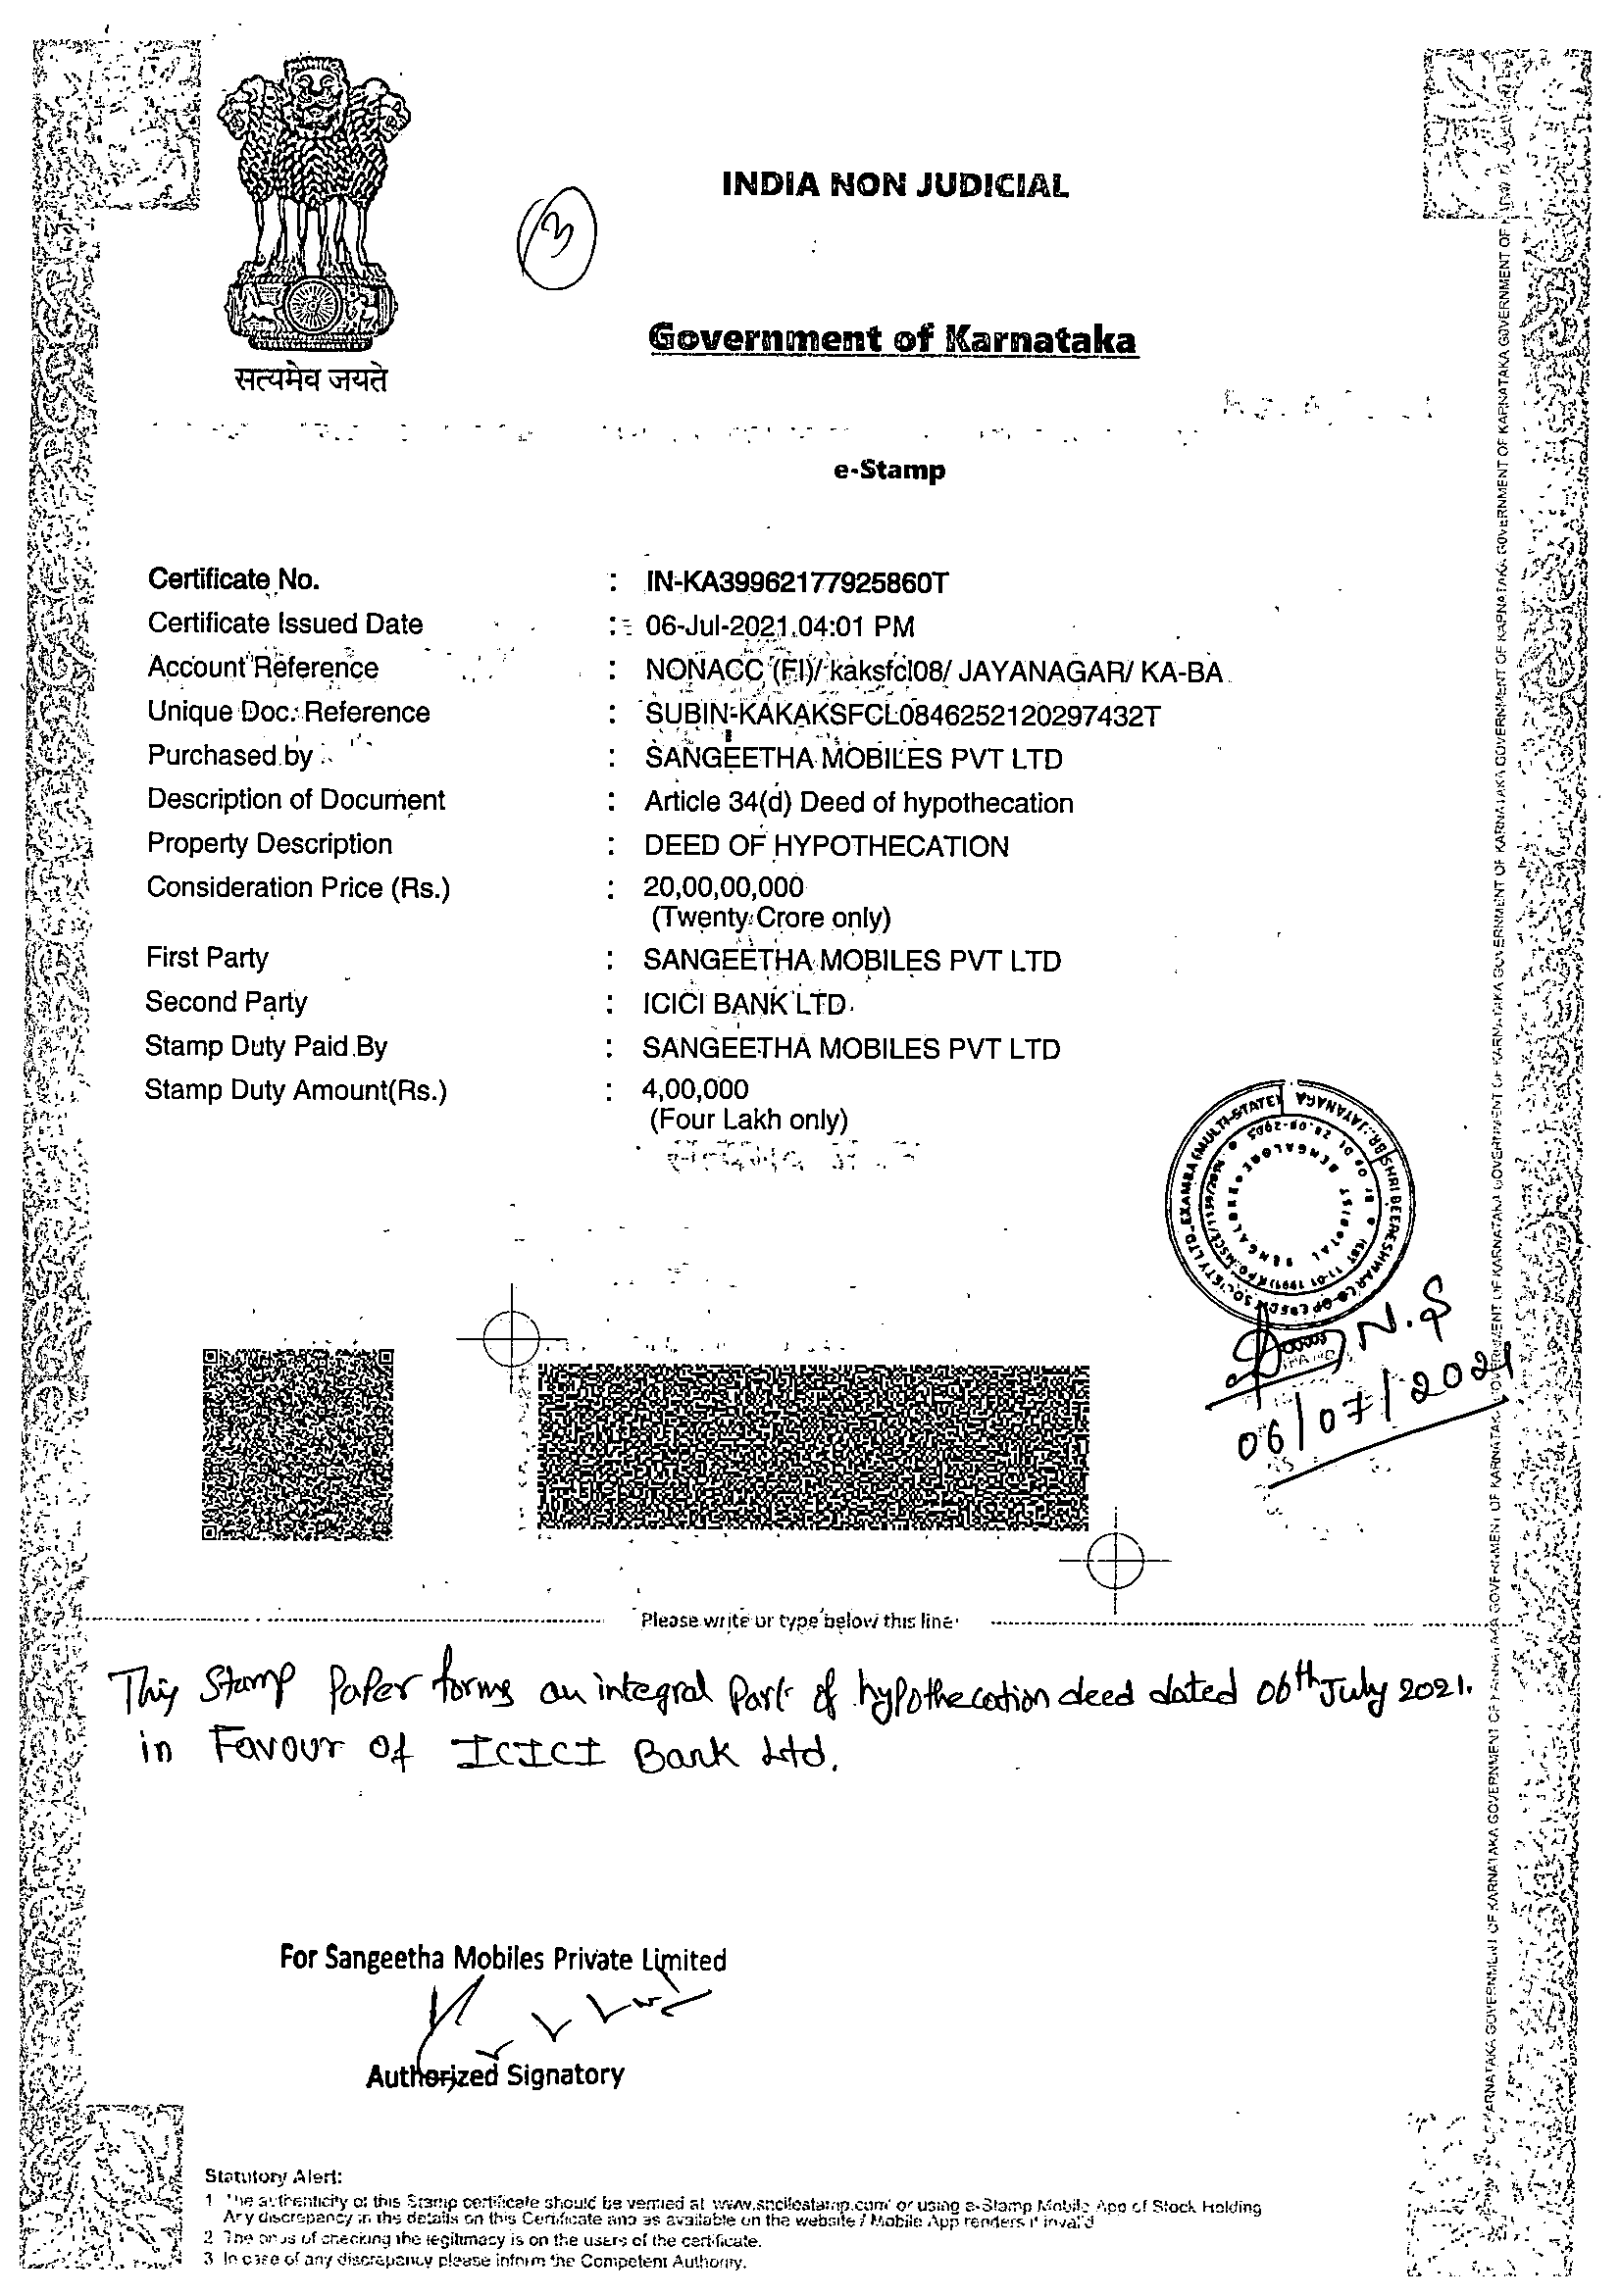 INDIA NON JUDICIAL
3
Government of Karnataka
सत्यमेव जयते
e-Stamp
Certificate No. : IN-KA39962177925860T
Certificate Issued Date : 06-Jul-2021 04:01 PM
Account Reference : NONACC (FI)/ kaksfcl08/ JAYANAGAR/ KA-BA
Unique Doc. Reference : SUBIN-KAKAKSFCL0846252120297432T
Purchased by : SANGEETHA MOBILES PVT LTD
Description of Document : Article 34(d) Deed of hypothecation
Property Description : DEED OF HYPOTHECATION
Consideration Price (Rs.) : 20,00,00,000
(Twenty Crore only)
First Party : SANGEETHA MOBILES PVT LTD
Second Party : ICICI BANK LTD
Stamp Duty Paid By : SANGEETHA MOBILES PVT LTD
Stamp Duty Amount(Rs.) : 4,00,000
(Four Lakh only)
SHRI BEERESHWAR CO-OP CREDIT SOCIETY LTD. EXAMBA (MULTI-STATE) BR: JAYANAGAR
N.S
06/07/2021
Please write or type below this line
This Stamp Paper forms an integral Part of hypothecation deed dated 06th July 2021.
in Favour of ICICI Bank Ltd.
For Sangeetha Mobiles Private Limited
Authorized Signatory
Statutory Alert:
1 The authenticity of this Stamp certificate should be verified at www.shcilestamp.com' or using e-Stamp Mobile App of Stock Holding
Any discrepancy in the details on this Certificate and as available on the website / Mobile App renders it invalid
2 The onus of checking the legitimacy is on the users of the certificate.
3 In case of any discrepancy please inform the Competent Authority.